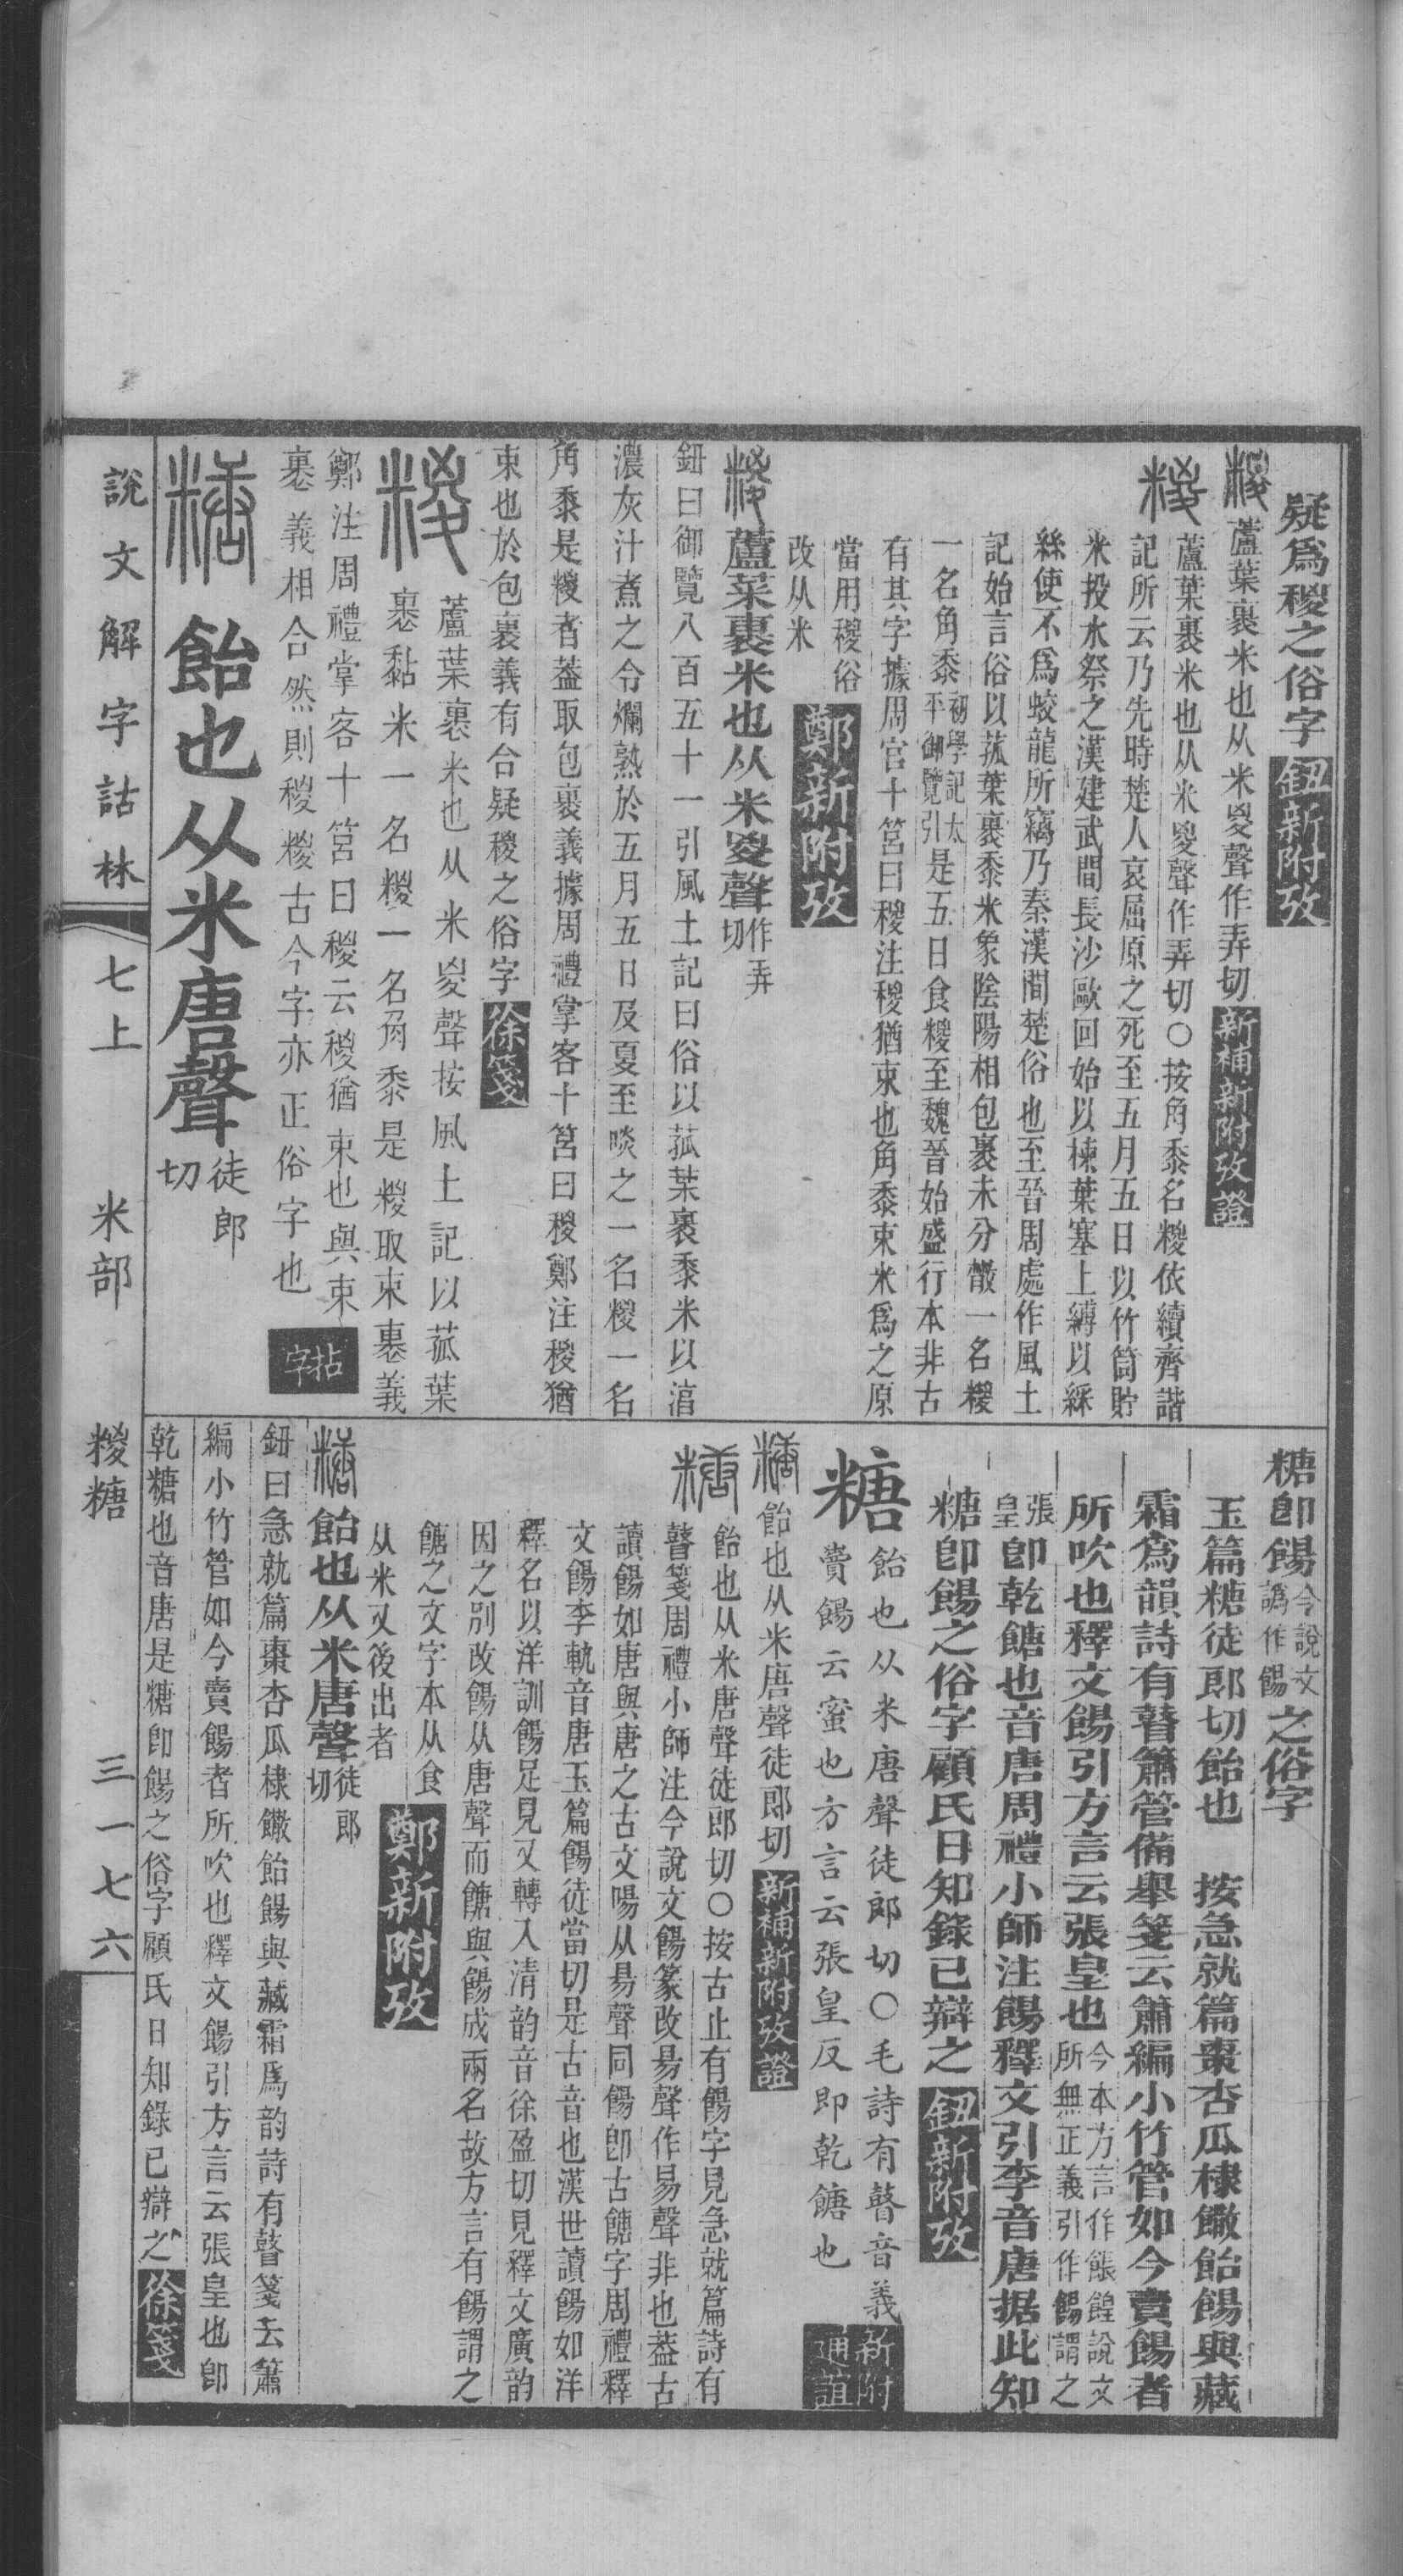 疑爲稯之俗字 鈕新附攷
糉 蘆葉裹米也从米㚇聲作弄切 新補新附攷證
糉 蘆葉裹米也从米㚇聲作弄切○按角黍名糉依續齊諧
記所云乃先時楚人哀屈原之死至五月五日以竹筒貯
米投水祭之漢建武間長沙歐回始以楝葉塞上縛以綵
絲使不爲蛟龍所竊乃秦漢間楚俗也至晉周處作風土
記始言俗以菰葉裹黍米象陰陽相包裹未分散一名糉
一名角黍初學記太平御覽引是五日食糉至魏晉始盛行本非古
有其字據周官十筥曰稯注稯猶束也角黍束米爲之原
當用稯俗
改从米 鄭新附攷
糉 蘆葉裹米也从米㚇聲作弄切
鈕曰御覽八百五十一引風土記曰俗以菰葉裹黍米以湻
濃灰汁煮之令爛熟於五月五日及夏至啖之一名糉一名
角黍是糉者葢取包裹義據周禮掌客十筥曰稯鄭注稯猶
束也於包裹義有合疑稯之俗字 徐箋
糉 蘆葉裹米也从米㚇聲按風土記以菰葉
裹黏米一名糉一名角黍是糉取束裹義
鄭注周禮掌客十筥曰稯云稯猶束也與束
裹義相合然則稯糉古今字亦正俗字也 拈字
糖 飴也从米唐聲徒郎切
糖卽餳今說文譌作餳之俗字
玉篇糖徒郎切飴也 按急就篇棗杏瓜棣饊飴餳與藏
霜爲韻詩有瞽簫管備舉箋云簫編小竹管如今賣餳者
所吹也釋文餳引方言云張皇也今本方言作餦餭說文所無正義引作餳謂之
張皇卽乾餹也音唐周禮小師注餳釋文引李音唐据此知
糖卽餳之俗字顧氏日知錄已辯之 鈕新附攷
糖 飴也从米唐聲徒郎切○毛詩有瞽音義
賣餳云蜜也方言云張皇反即乾餹也 新附通誼
糖 飴也从米唐聲徒郎切 新補新附攷證
糖 飴也从米唐聲徒郎切○按古止有餳字見急就篇詩有
瞽箋周禮小師注今說文餳篆改昜聲作易聲非也葢古
讀餳如唐與唐之古文啺从昜聲同餳卽古餹字周禮釋
文餳李軌音唐玉篇餳徒當切是古音也漢世讀餳如洋
釋名以洋訓餳足見又轉入清韵音徐盈切見釋文廣韵
因之別改餳从唐聲而餹與餳成兩名故方言有餳謂之
餹之文字本从食
从米又後出者 鄭新附攷
糖 飴也从米唐聲徒郎切
鈕曰急就篇棗杏瓜棣饊飴餳與藏霜爲韵詩有瞽箋云簫
編小竹管如今賣餳者所吹也釋文餳引方言云張皇也卽
乾糖也音唐是糖卽餳之俗字顧氏日知錄已辯之 徐箋
說文解字詁林 七上 米部 糉糖 三一七六